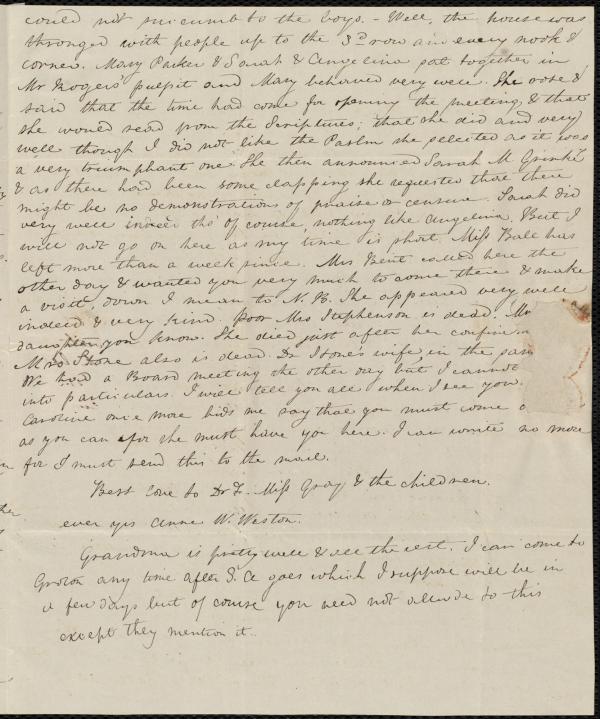 could not succumb to the boys. - Well, the house was
thronged with people up to the 3d row and every nook &
corner. Mary Parker & Sarah & Angelina sat together in
Mr Rogers' pulpit and Mary behaved very well. She rose &
said that the time had come for opening the meeting, & that
she would read from the Scriptures; that she did and very
well though I did not like the Psalm she selected as it was
a very triumphant one. She then announced Sarah M. Grimké
& as there had been some clapping she requested that there
might be no demonstrations of praise or censure. Sarah did
very well indeed tho' of course, nothing like Angelina. But I
will not go on here as my time is short. Miss Ball has
left more than a week since. Mrs Bent called here the
other day & wanted you very much to come there & make
a visit, down I mean to N. B. She appeared very well
indeed & very kind. Poor Mrs Stephenson is dead.
daughter you know. She died just after her confinem
Mrs Stone also is dead. Dr Stone's wife in the sam
We had a Board meeting the other day but I cannot
into particulars. I will tell you all when I see you.
Caroline once more bids me say that you must come
as you can for she must have you here. I can write no more
for I must send this to the mail.
Best love to Dr F. Miss Gray & the children.
ever yrs Anne W. Weston.
Grandma is pretty well & all the rest. I can come to
Groton any time after goes which I suppose will be in
a few days but of course you need not allude to this
except they mention it.